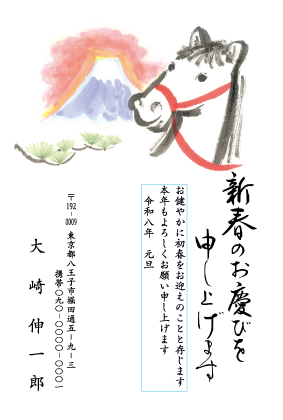 新春のお慶びを
申し上げます
お健やかに初春をお迎えのことと存じます
本年もよろしくお願い申し上げます
令和八年　元旦
〒192-0009 東京都八王子市堀田通五ー九ー三
携帯〇九〇ー〇〇〇〇ー〇〇〇一
大崎伸一郎